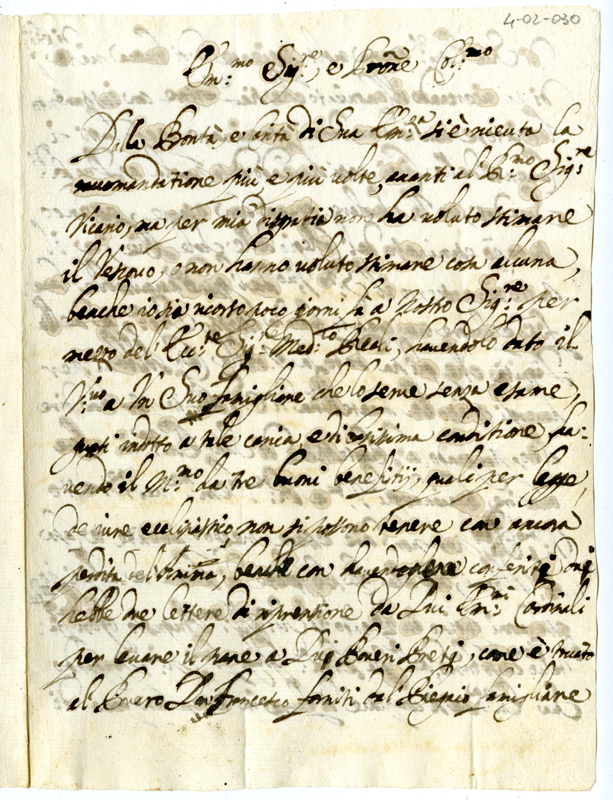 4-02-030
Em:mo Sig:re, e Prōne Col:mo
Dala Bontà e carità di Sua Em:za si è riceuta la
racomandatione più e più volte avanti al R:mo Sig:re
Vicario, ma per mia disgratia non ha voluto stimare
il Vescovo, e non hanno voluto stimare cosa alcuna,
benche io sia ricorso poco giorni fà a Nostro Sig:re per
mezzo del' Sig:r Med:co Reali, havendolo dato il
a Un' Suo famiglione che lo serve senza esame,
indotto a tale carica, e di condittione ha-
vendo il M:mo da tre buoni benefitij, quali per legge
de iure eclesiastico non si possono tenere con ancora
perdita del' Anima, benche con conferiti
hebbe due lettere di riprensione da Dui Em:mi Cardinali
per levare il pane a Dui Poveri Preti, come è
al' Povero Don Francesco forniti dal' famigliare